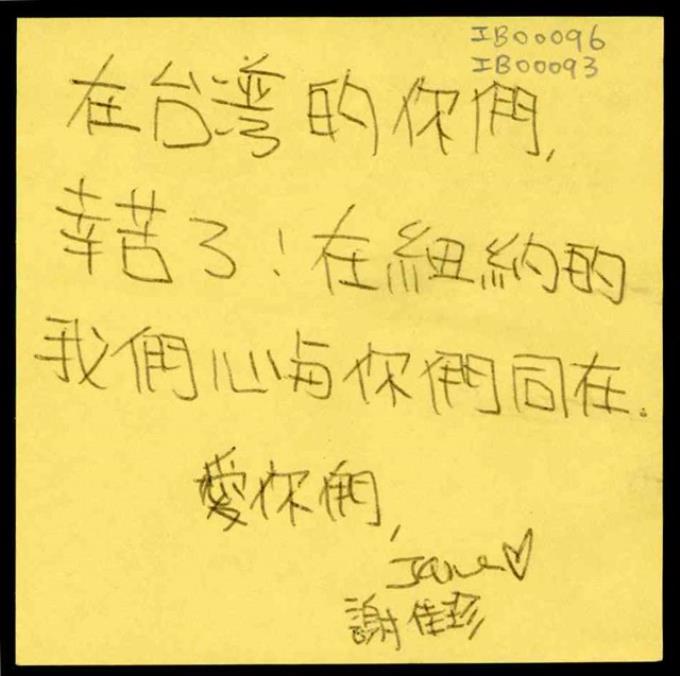 IB00096
IB00093
在台灣的你們,
辛苦了!在紐約的
我們心与你們同在.
愛你們,
Jane♡
謝佳珍